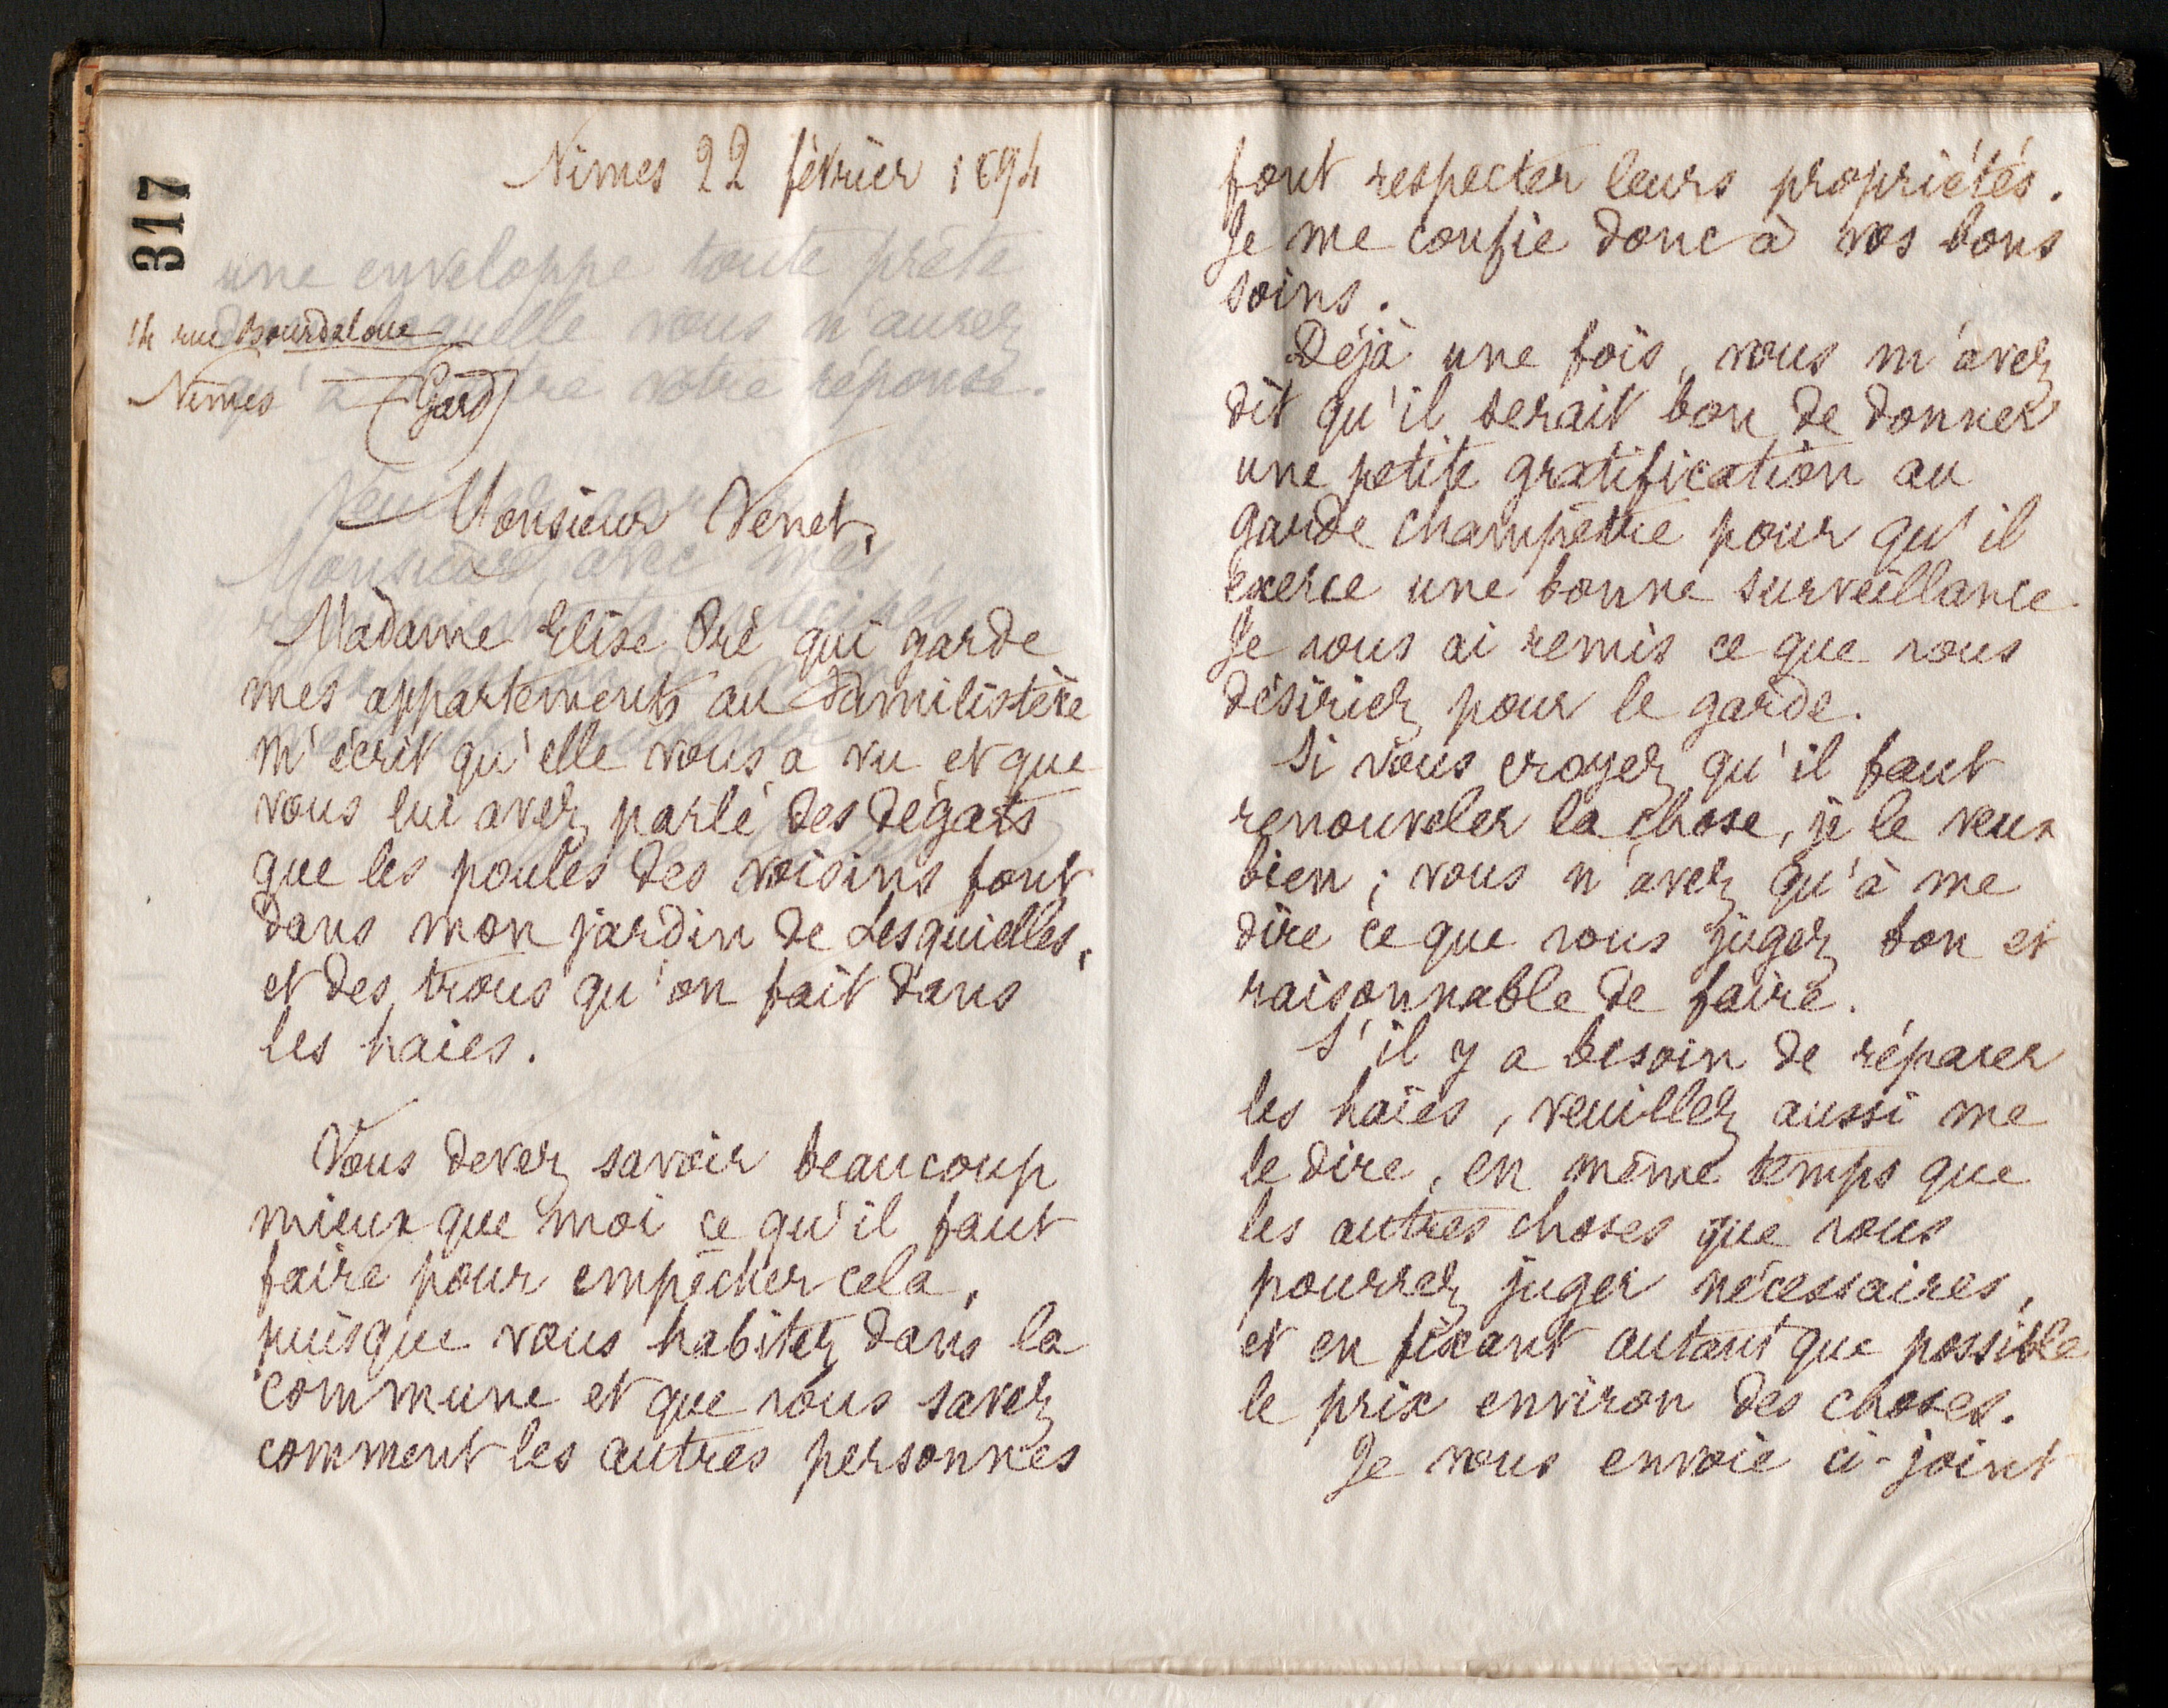 317
Nîmes 22 février 1894
14 rue Bourdaloue
Nîmes (Gard)
Monsieur Venet,
Madame Elise Pré qui garde
mes appartements au Familistère
m'écrit qu'elle vous a vu et que
vous lui avez parlé des dégats
que les poules des voisins font
dans mon jardin de Lesquielles,
et des trous qu'on fait dans
les haies.
Vous devez savoir beaucoup
mieux que moi ce qu'il faut
faire pour empêcher cela,
puisque vous habitez dans la
commune et que vous savez
comment les autres personnes
font respecter leurs propriétés.
Je me confie donc à vos bons
soins.
Déjà une fois, vous m'avez
dit qu'il serait bon de donner
une petite gratification au
garde champêtre pour qu'il
exerce une bonne surveillance
Je vous ai remis ce que vous
désiriez pour le garde.
Si vous croyez qu'il faut
renouveler la chose, je le veux
bien ; vous n'avez qu'à me
dire ce que vous jugez bon et
raisonnable de faire.
S'il y a besoin de réparer
les haies, veuillez aussi me
le dire, en même temps que
les autres choses que vous
pourrez juger nécessaires,
et en fixant autant que possible
le prix environ des choses.
Je vous envoie ci-joint
une enveloppe toute prête
dans laquelle vous n'aurez
qu'à mettre votre réponse.
Monsieur, avec mes